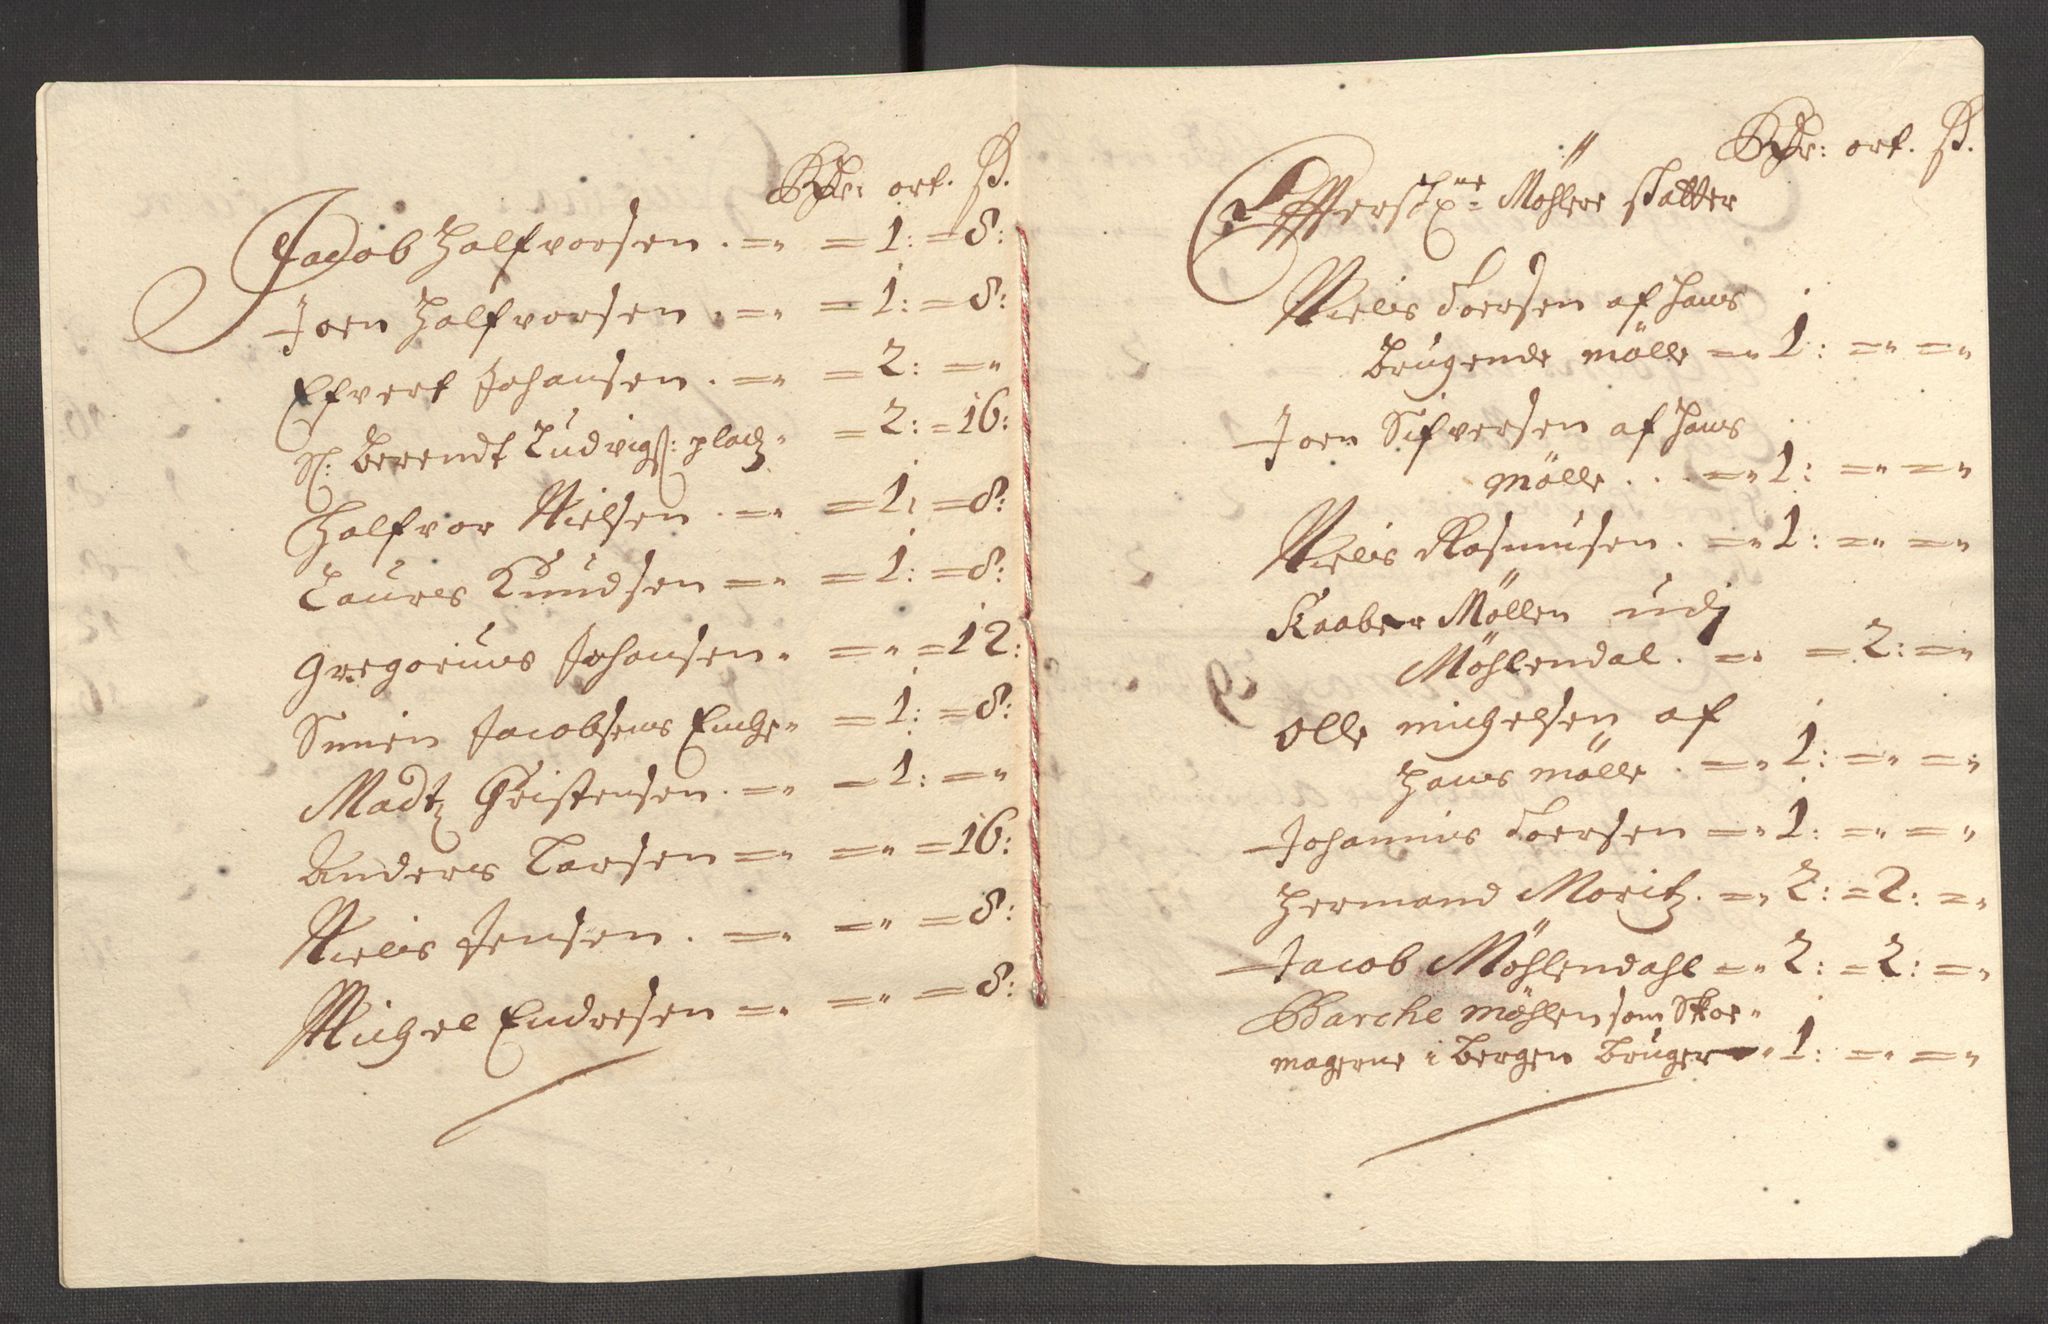 Rdr: ort. ß.
Jacob Halfvorsen . =" =1: =8:
Joen Halfvorsen . =" =1: =8:
Efvert Johansen . =" =2: ="
Sl: Berendt Ludvigß: pladz" =2: =16:
Halfvor Nielsen . =" =1: =8:
Laures Knudsen =" =1: =8:
Gregorius Johansen" =" =12:
Simen Jacobsens Enche" =1: =8:
Madtz Christensen . =" =1: ="
Anders Larsen =" =" =16:
Nielis Jensen . =" =" =8:
Michel Endresen =" =" =8:
Rdr: ort. ß.
Möhlere skatter
Nielis Joersen af hans
brugende mölle =" 1: =" ="
Joen Sifversen af hans
mölle . . . =" 1: =" ="
Nielis Rasmusen . =" 1: =" ="
Kaaber Möllen udj
Möhlendal . =" =2: ="
Olle Michelsen af
hans mölle . =" 1: =" ="
Johannis Joersen =" 1: =" ="
Hermand Moritz . =" 2: =2: ="
Jacob Möhlendahl =" 2: =2: ="
Barche Möhlen som Skoe"
magerne i Bergen bruger =" 1: =" ="